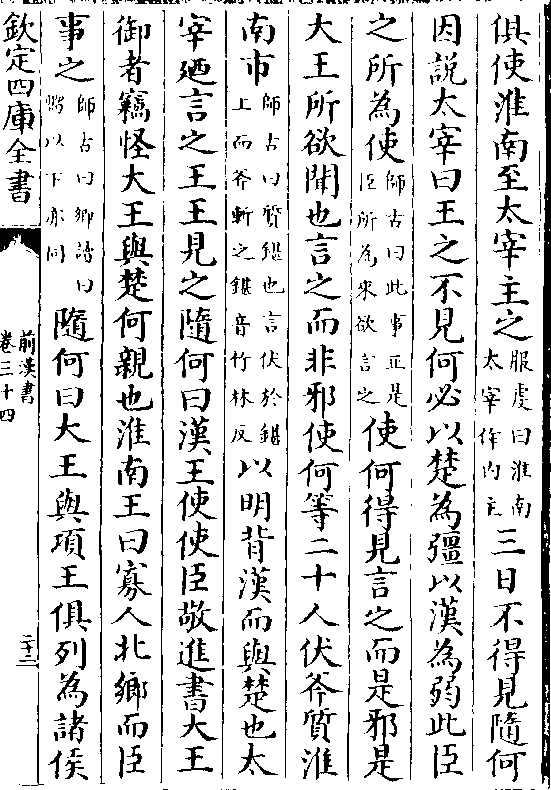 俱使淮南至太宰主之服䖍曰淮南太宰作内主三日不得見隨何
因説太宰曰王之不見何必以楚為彊以漢為弱此臣
之所為使師古曰此事正是臣所為來欲言之使何得見言之而是邪是
大王所欲聞也言之而非邪使何等二十人伏斧質淮
南市師古曰質鍖也言伏於鍖上而斧斬之鍖音竹林反以明背漢而與楚也太
宰廼言之王王見之隨何曰漢王使使臣敬進書大王
御者竊怪大王與楚何親也淮南王曰寡人北鄉而臣
事之師古曰鄉讀曰嚮以下亦同隨何曰大王與項王俱列為諸侯
欽定四庫全書
前漢書
卷三十四
二十三